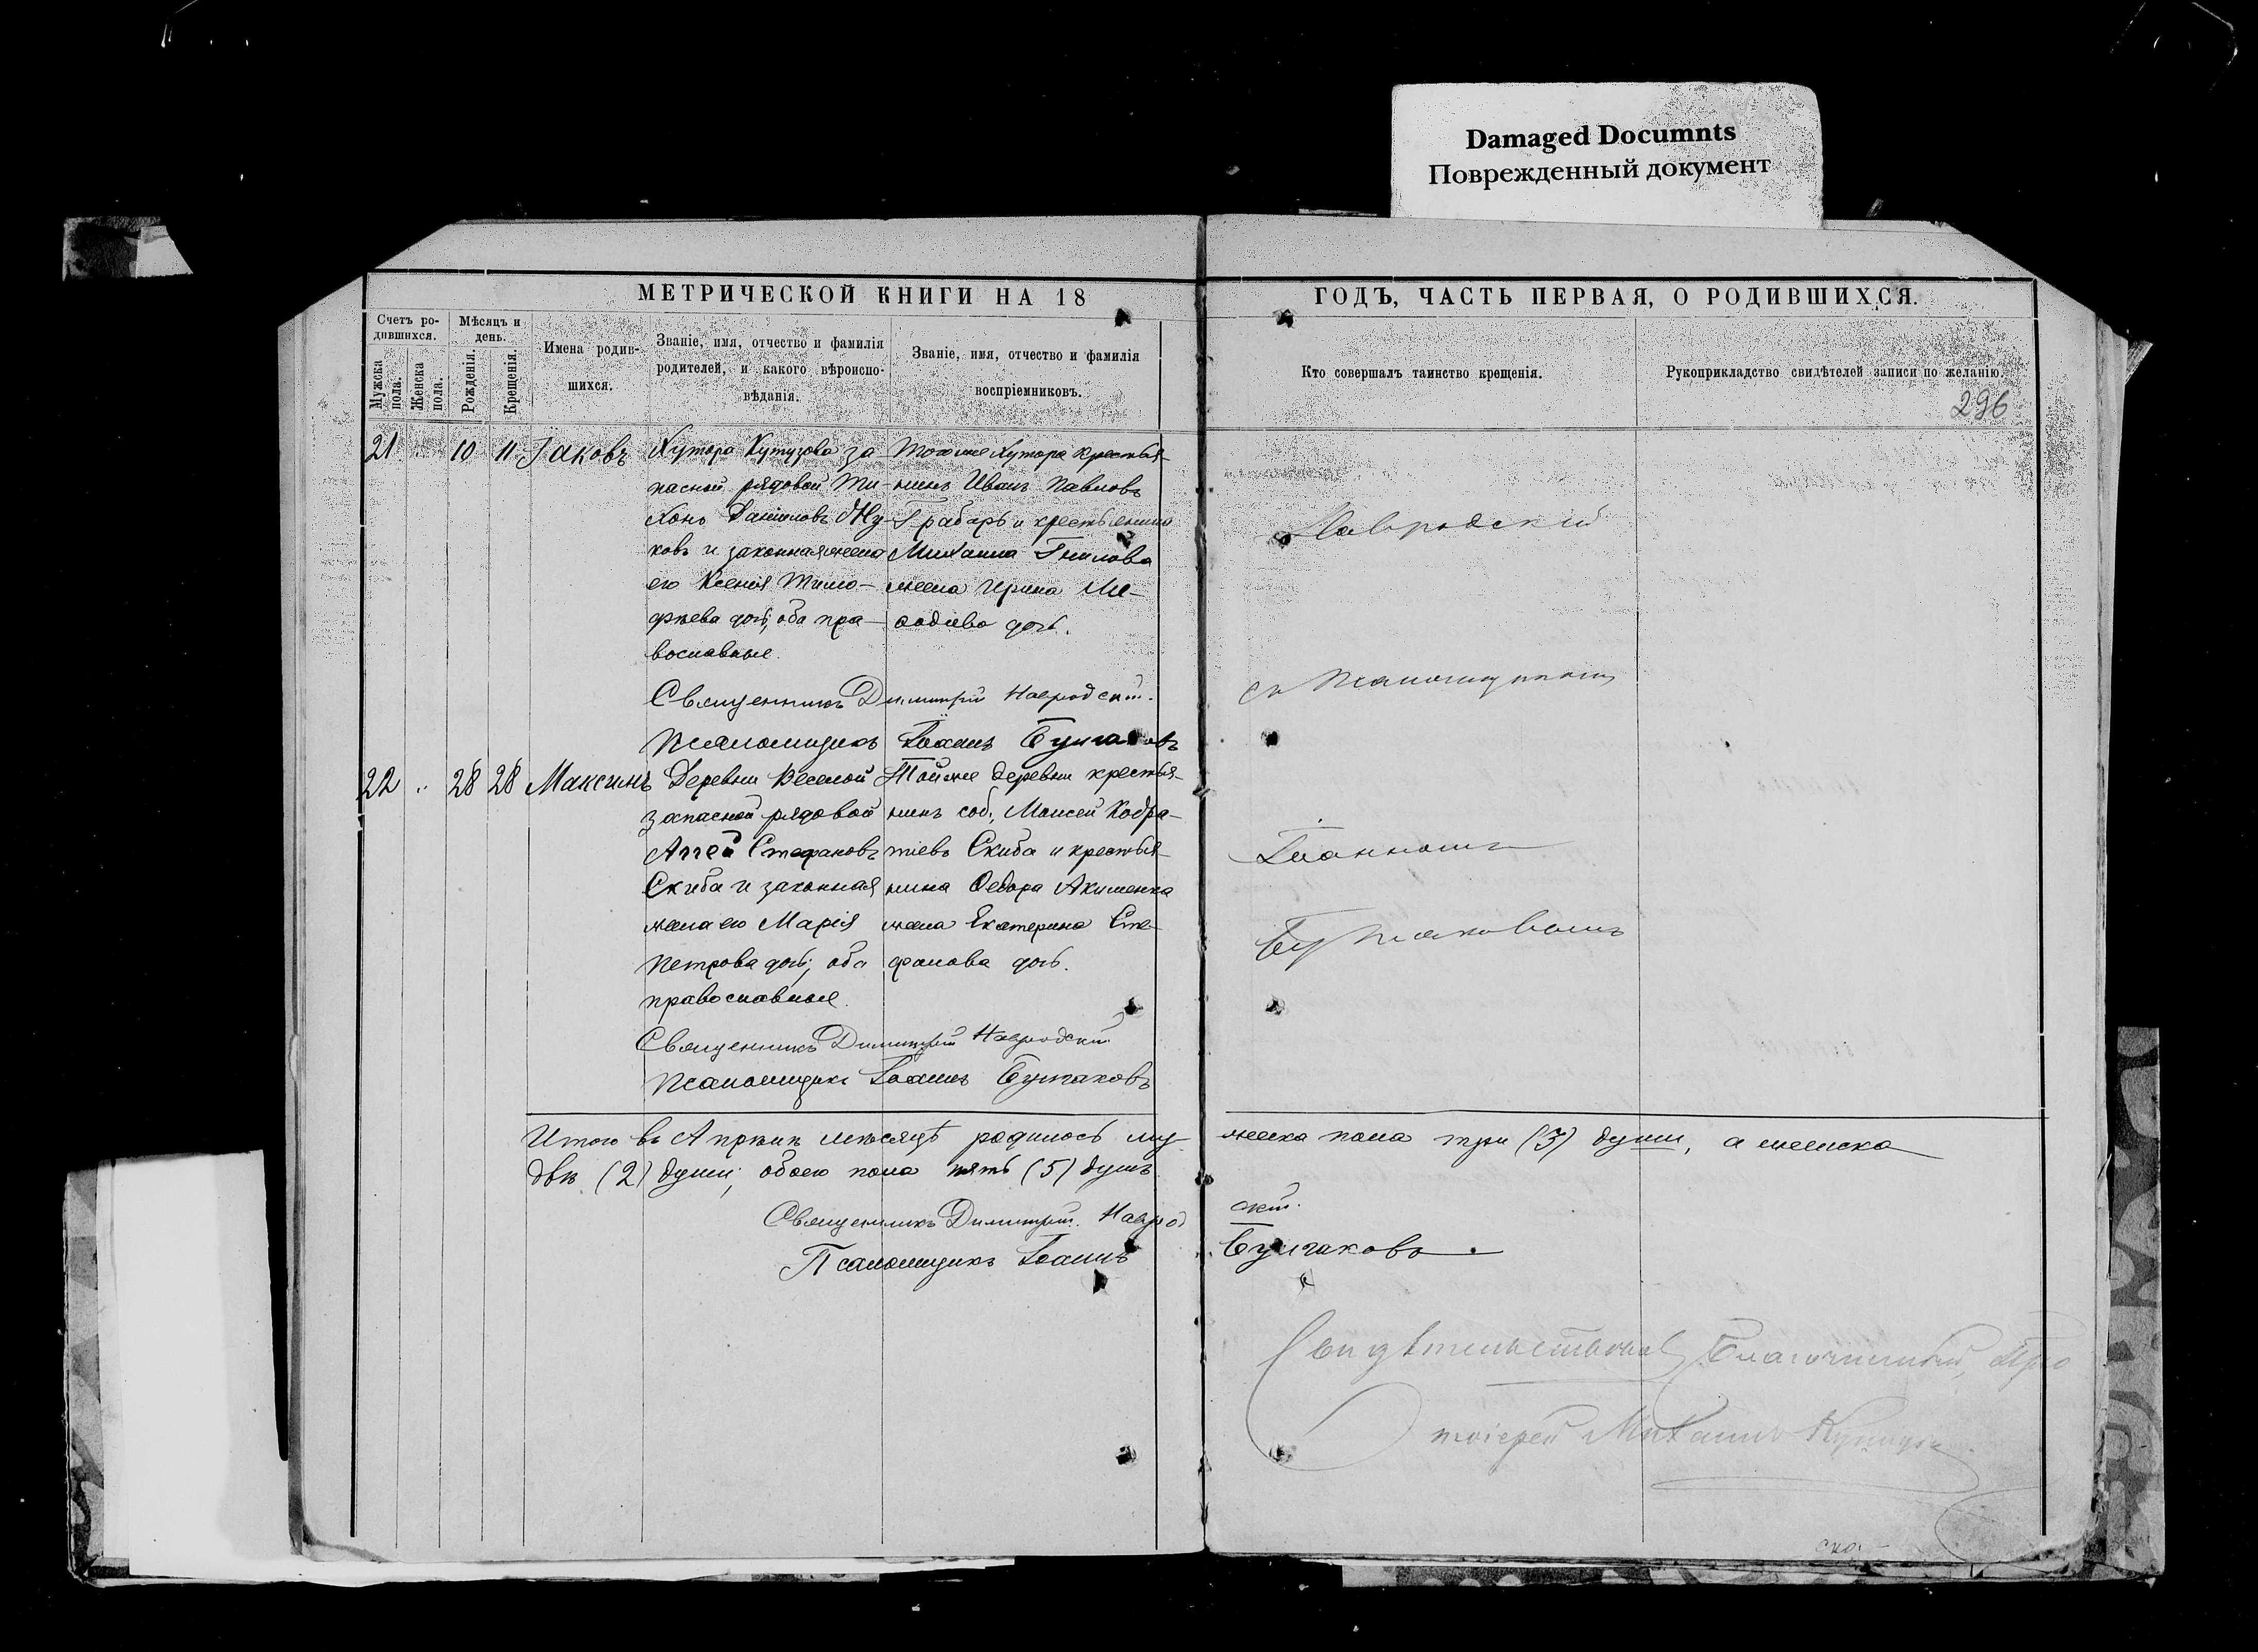 Damaged Documnts
Поврежденный документ
МЕТРИЧЕСКОЙ КНИГИ НА 18
ГОДЪ, ЧАСТЬ ПЕРВАЯ, О РОДИВШИХСЯ.
Счетъ ро-
дившихся.
Мужска
пола.
Женска
пола.
Мѣсяцъ и
день.
Рожденія.
Крещенія.
Имена родив-
шихся.
Званіе, имя, отчество и фамилія
родителей, и какого вѣроиспо-
вѣданія.
Званіе, имя, отчество и фамилія
воспріемниковъ.
Кто совершалъ таинство крещенія.
Рукоприкладство свидѣтелей записи по желанію.
296
21 10 11 Іаковъ
Хутора Кутузова за
пасной рядовой Ти-
хонъ Даніиловъ Жу-
ковъ и законная жена
его Ксенія Тимо-
фѣева дочь, оба пра-
вославные.
Тогоже Хутора крестья-
нинъ Иванъ Павловъ
Грабарь и крестьянина
Михаила Гнилова
жена Ирина Ме-
фодіева дочь.
Священникъ Димитрій Навродскій.
Псаломщикъ Іоаннъ Булгаковъ
22 28 28 Максимъ
Деревни Веселой
запасной рядовой
Аггей Стефановъ
Скиба и законная
жена его Марія
Петрова дочь, оба
православные.
Тойже деревни крестья-
нинъ соб. Моисей Кодра-
тіевъ Скиба и крестья-
нина Ѳедора Акименка
жена Екатерина Сте-
фанова дочь.
Священникъ Димитрій Навродскій
Псаломщикъ Іоаннъ Булгаковъ
Навродскій
съ Псаломщикомъ
Іоанномъ
Булгаковымъ
Итого въ Апрѣлѣ мѣсяцѣ родилось му-
жеска пола три (3) души, а женска
двѣ (2) души, обоего пола пять (5) душъ
Священникъ Димитрій Наврод
скій.
Псаломщикъ Іоаннъ
Булгаковъ.
Свидѣтельствовалъ Благочинный, Про
тоіерей Михаилъ